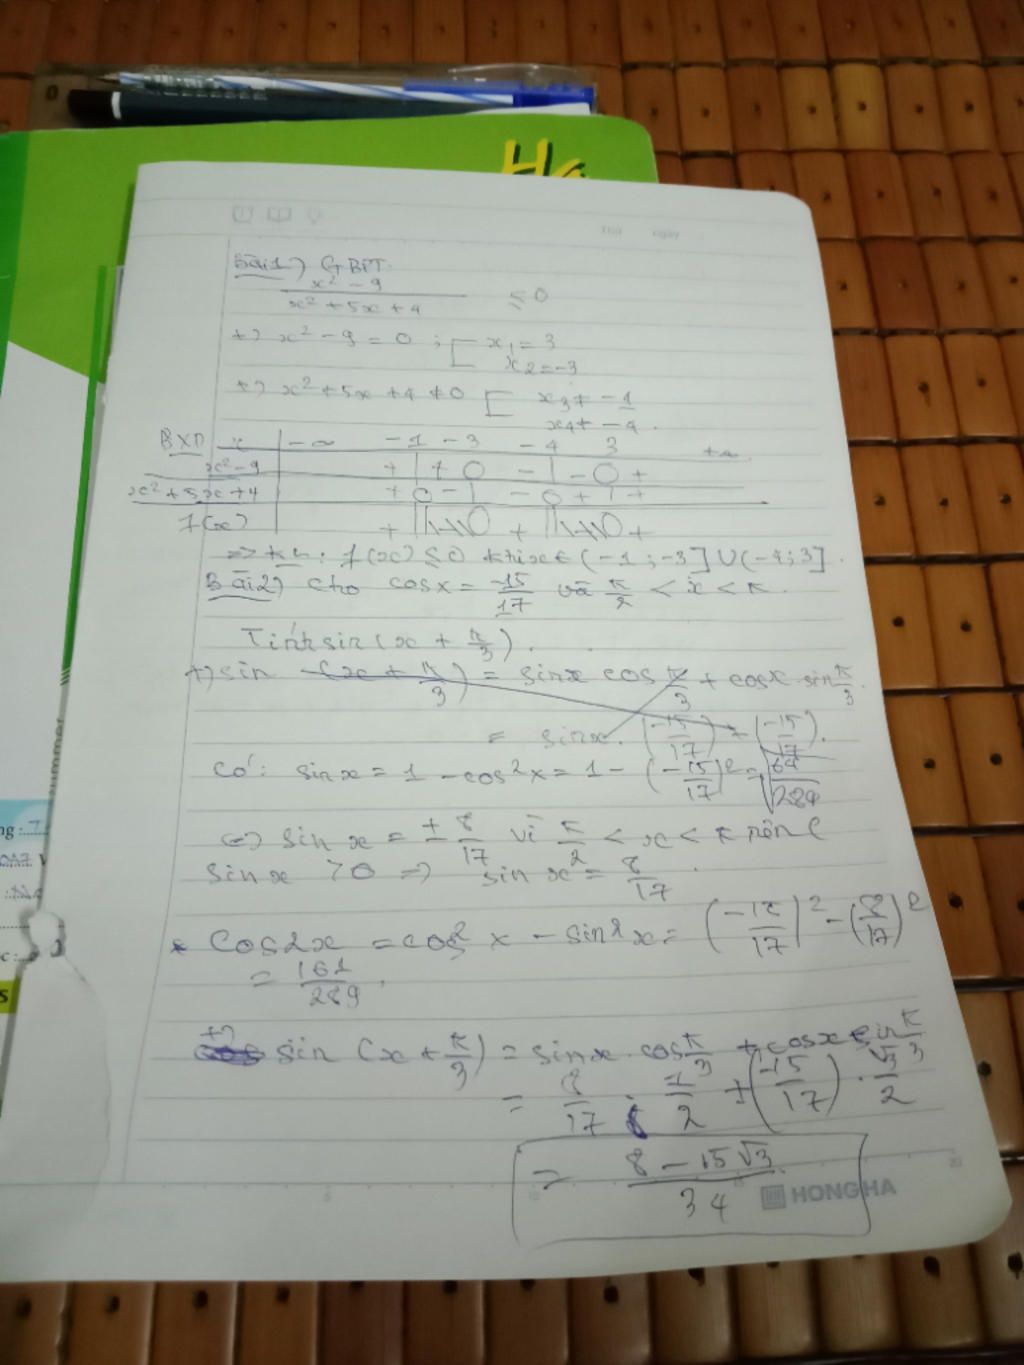 Ha
Thứ ngày
Bài 1) GBPT.
x² - 9
x² + 5x + 4 ≤ 0
+) x² - 9 = 0 ; [ x₁ = 3
x₂ = -3
+) x² + 5x + 4 ≠ 0 [ x₃ ≠ -1
x₄ ≠ -4.
BXD x -∞ -1 -3 -4 3 +∞
x² - 9 + | + 0 - | - 0 +
x² + 5x + 4 + 0 - | - 0 + | +
f(x) + || 0 + || 0 +
=> KL: f(x) ≤ 0 khi x ∈ (-1; -3] ∪ (-4; 3].
Bài 2) Cho cos x = -15/17 và π/2 < x < π.
Tính sin (x + π/3).
+) sin (x + π/3) = sin x cos π/3 + cos x . sin π/3.
= sin x . (-15/17) + (-15/17).
Có: sin x = 1 - cos² x = 1 - (-15/17)² = √64/289
<=> sin x = ± 8/17 vì π/2 < x < π nên (
sin x > 0 => sin x = 8/17.
* Cos 2x = cos² x - sin² x = (-15/17)² - (8/17)²
= 161/289.
+) sin (x + π/3) = sin x . cos π/3 + cos x sin π/3
= 8/17 . 1/2 + (-15/17) . √3/2
= 8 - 15√3 / 34
5 10 15 20
HONG HA